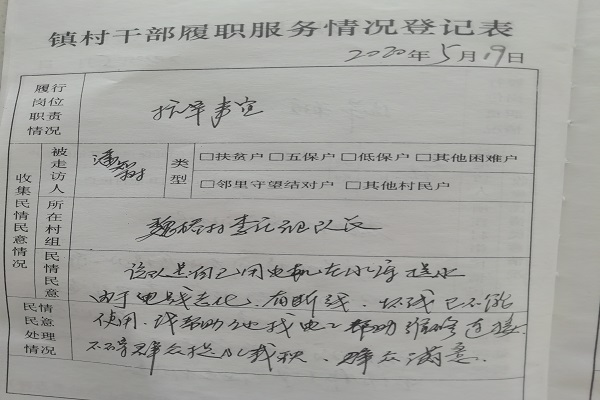 镇村干部履职服务情况登记表
2020年5月19日
履行岗位职责情况
抗旱事宜
收集民情民意情况
被走访人
潘 村
类型
□扶贫户 □五保户 □低保户 □其他困难户
□邻里守望结对户 □其他村民户
所在村组
魏 村委 组队长
民情民意
该队 用电机在水库提水
由于电线老化、有断线、坏线已不能
民情民意处理情况
使用、 帮助他找电工帮助维修连接
不 群众提水栽秧、群众满意.